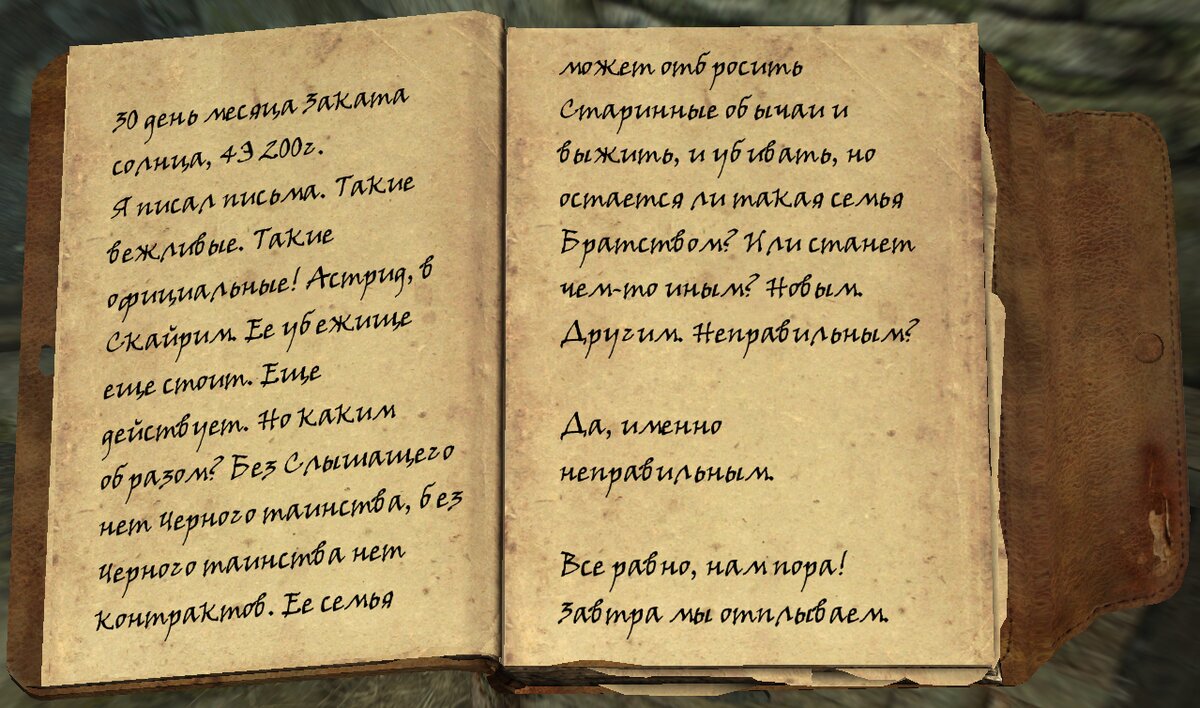 30 день месяца Заката
солнца, 4Э 200г.
Я писал письма. Такие
вежливые. Такие
официальные! Астрид, в
Скайрим. Ее убежище
еще стоит. Еще
действует. Но каким
образом? Без Слышащего
нет Черного таинства, без
Черного таинства нет
контрактов. Ее семья
может отбросить
Старинные обычаи и
выжить, и убивать, но
остается ли такая семья
Братством? Или станет
чем-то иным? Новым.
Другим. Неправильным?
Да, именно
неправильным.
Все равно, нам пора!
Завтра мы отплываем.